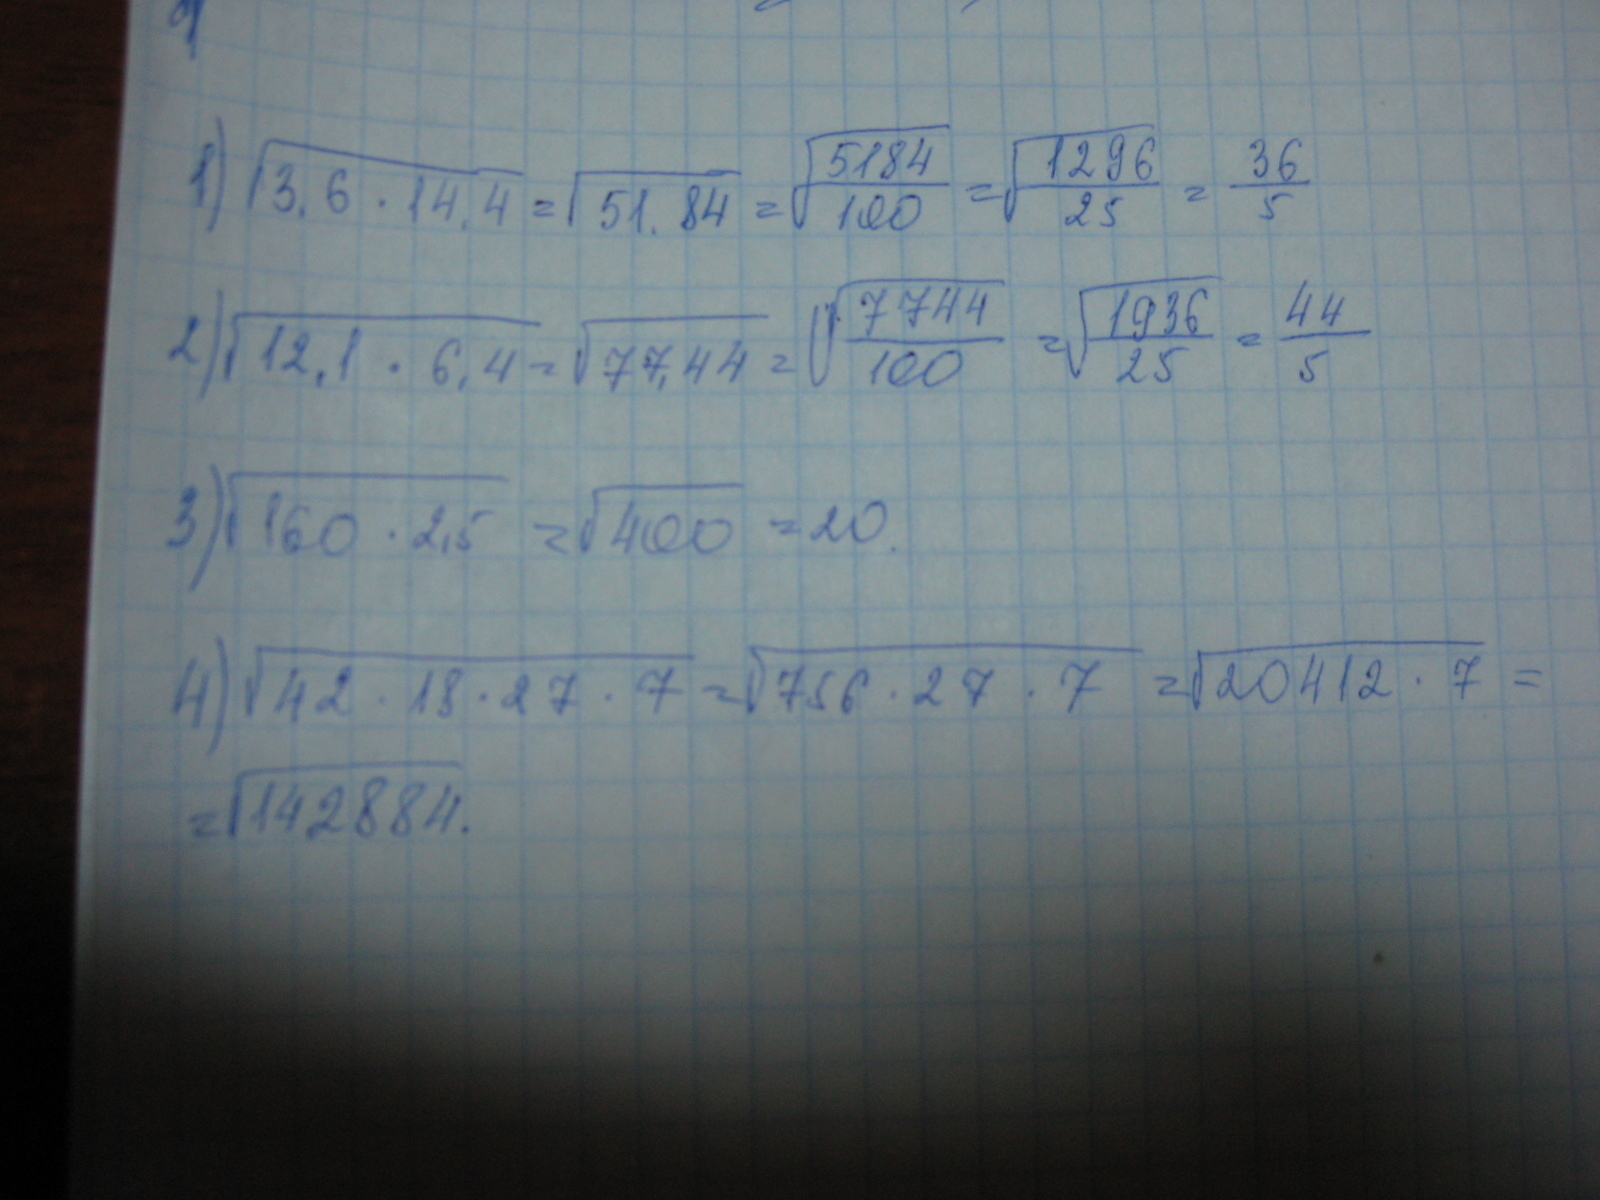 1) √3,6 · 14,4 = √51,84 = √5184/100 = √1296/25 = 36/5
2) √12,1 · 6,4 = √77,44 = √7744/100 = √1936/25 = 44/5
3) √160 · 2,5 = √400 = 20.
4) √42 · 18 · 27 · 7 = √756 · 27 · 7 = √20412 · 7 =
= √142884.